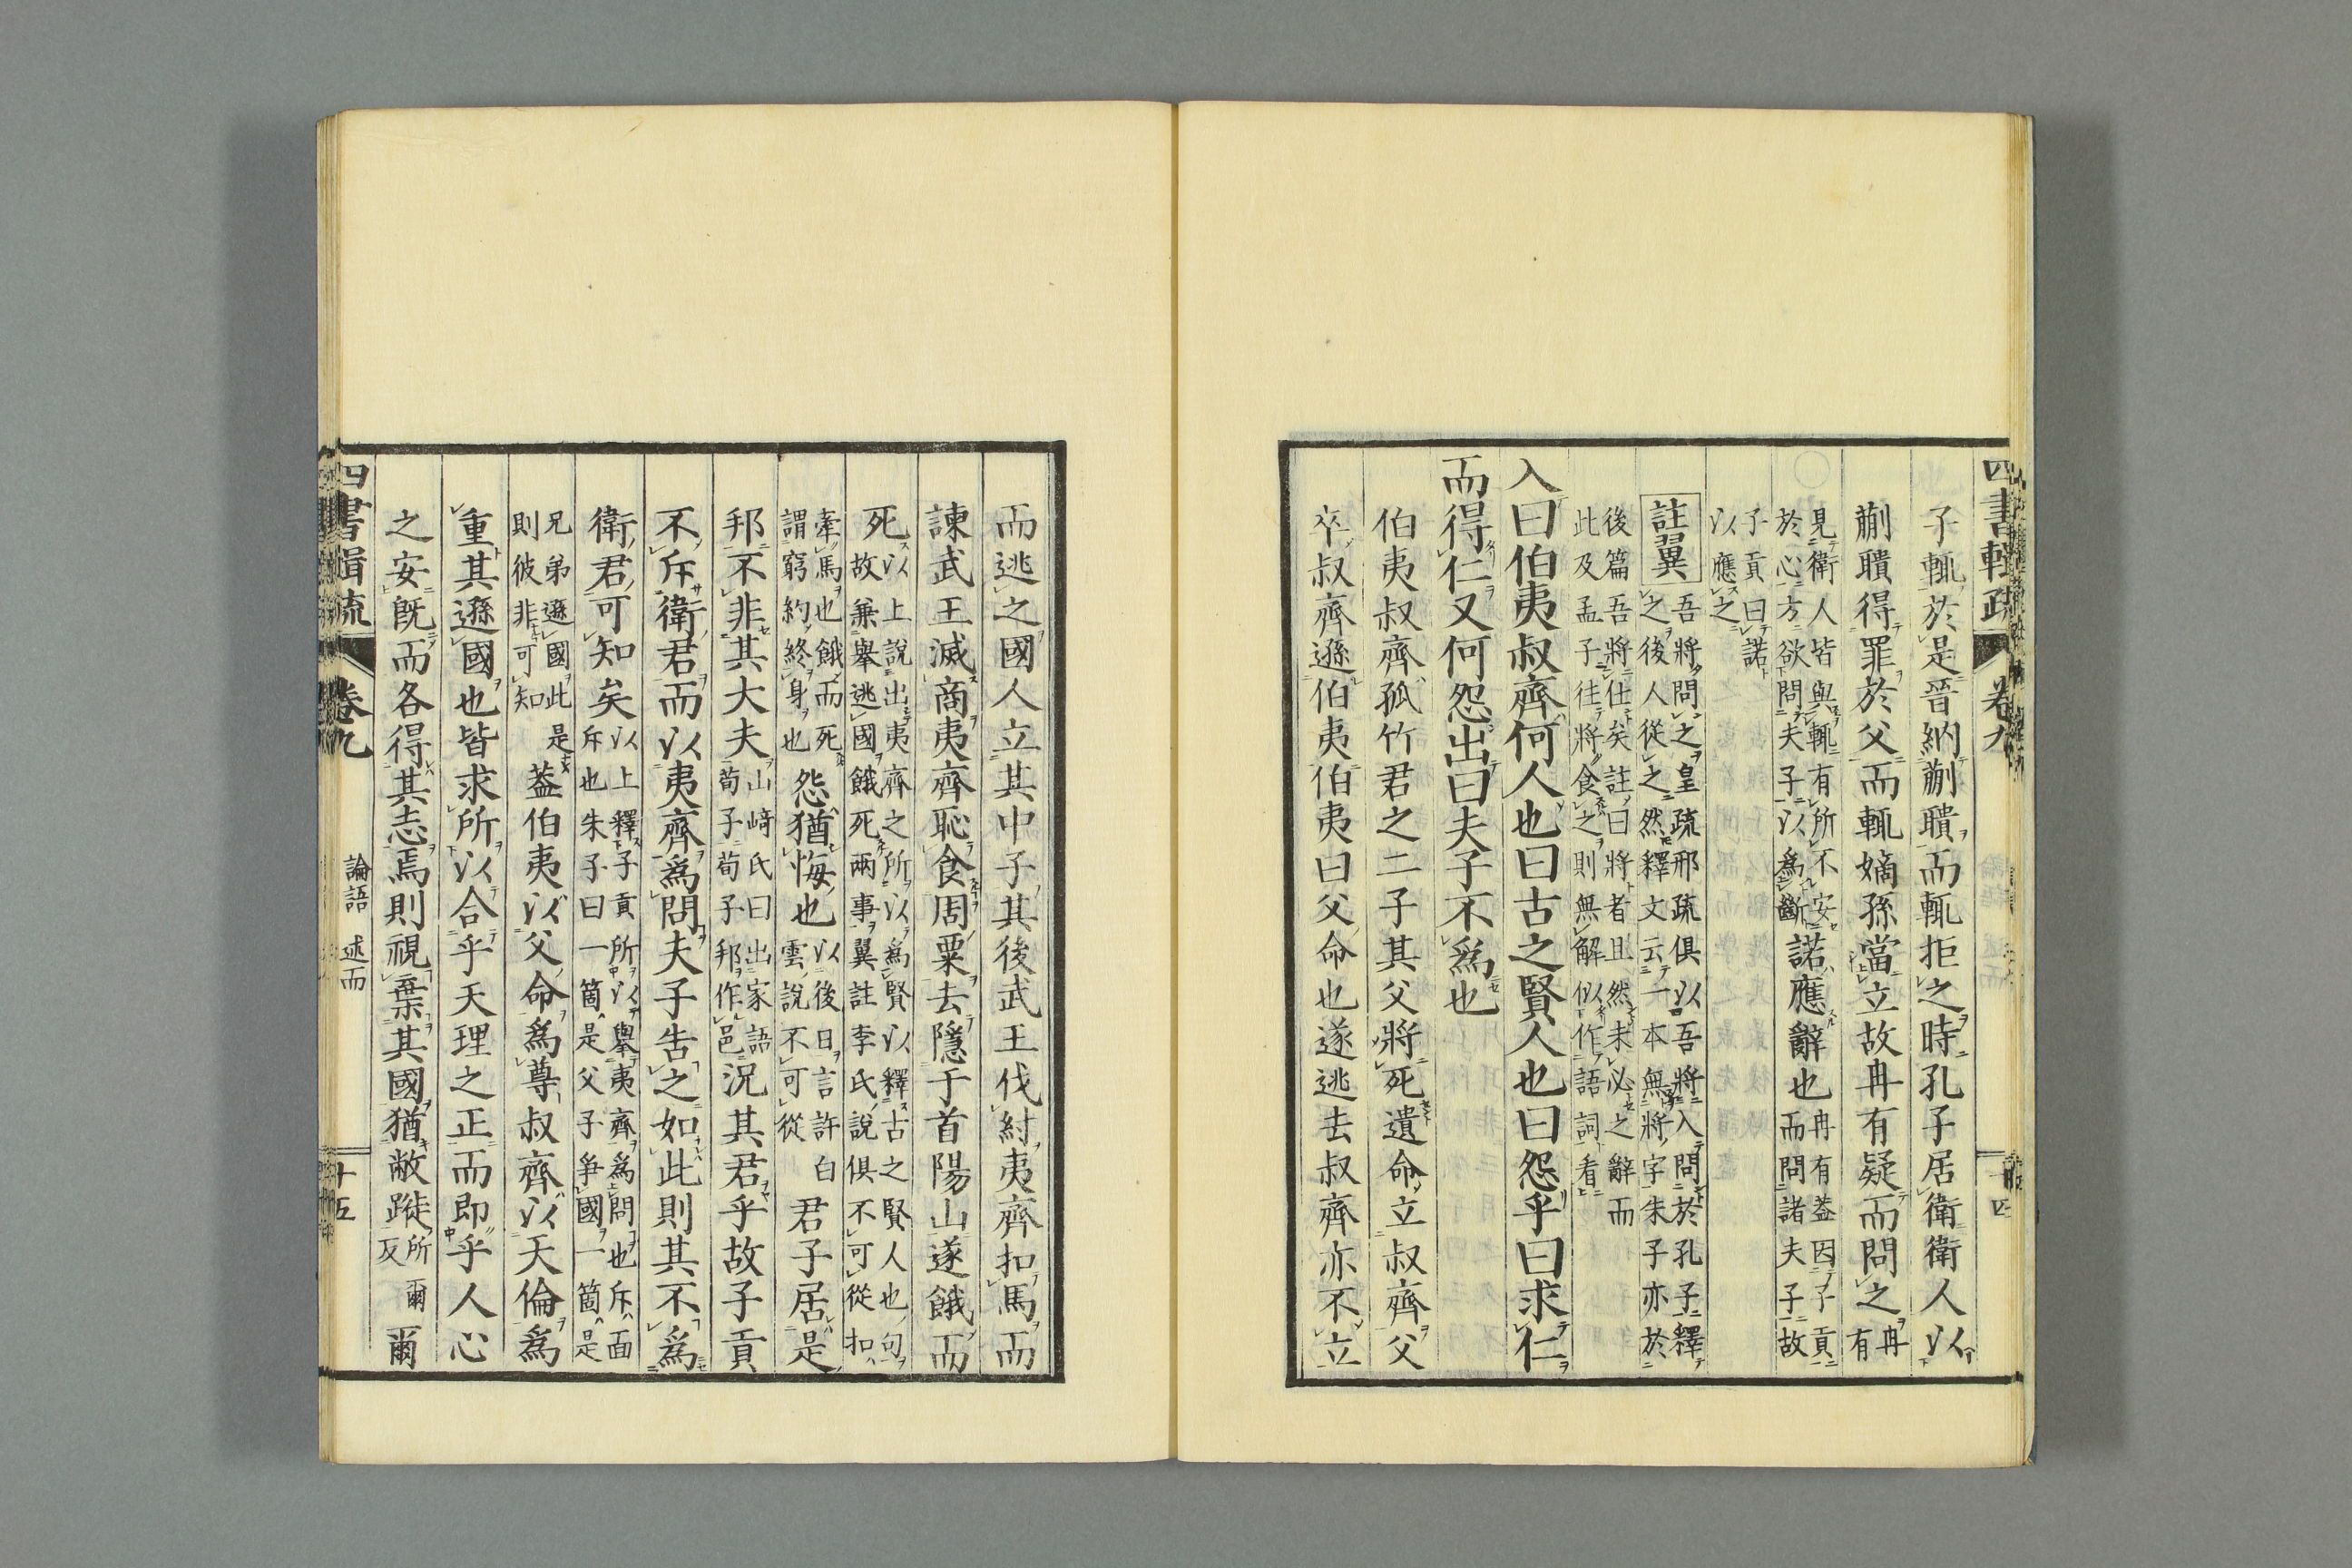 四書輯疏
卷九
十四
子輒於是晉納蒯聵而輒拒之時孔子居衛衛人以
蒯聵得罪於父而輒嫡孫當立故冉有疑而問之冉有
見衛人皆與輒有所不安於心方欲問夫子以為斷諾應辭也冉有蓋因子貢而問諸夫子故
子貢曰諾以應之
註翼吾將問之皇疏邢疏俱以吾將入問於孔子釋之後人從之然釋文云一本無將字朱子亦於
後篇吾將仕矣註曰將者且然未必之辭而此及孟子往將食之則無解似作語詞看
入曰伯夷叔齊何人也曰古之賢人也曰怨乎曰求仁
而得仁又何怨出曰夫子不為也
伯夷叔齊孤竹君之二子其父將死遺命立叔齊父
卒叔齊遜伯夷伯夷曰父命也遂逃去叔齊亦不立
而逃之國人立其中子其後武王伐紂夷齊扣馬而
諫武王滅商夷齊恥食周粟去隱于首陽山遂餓而
死以上說出夷齊之所以為賢以釋古之賢人也句故兼舉逃國餓死兩事翼註李氏說俱不可從扣
牽馬也餓而死謂窮約終身也怨猶悔也以後日言許白雲說不可從君子居是
邦不非其大夫山﨑氏曰出家語荀子荀子邦作邑況其君乎故子貢
不斥衛君而以夷齊為問夫子告之如此則其不為
衛君可知矣以上釋子貢所以舉夷齊為問也斥面斥也朱子曰一箇是父子爭國一箇是
兄弟遜國此是則彼非可知蓋伯夷以父命為尊叔齊以天倫為
重其遜國也皆求所以合乎天理之正而即乎人心
之安既而各得其志焉則視棄其國猶敝蹝所爾反爾
四書輯疏
卷九
論語 述而
十五